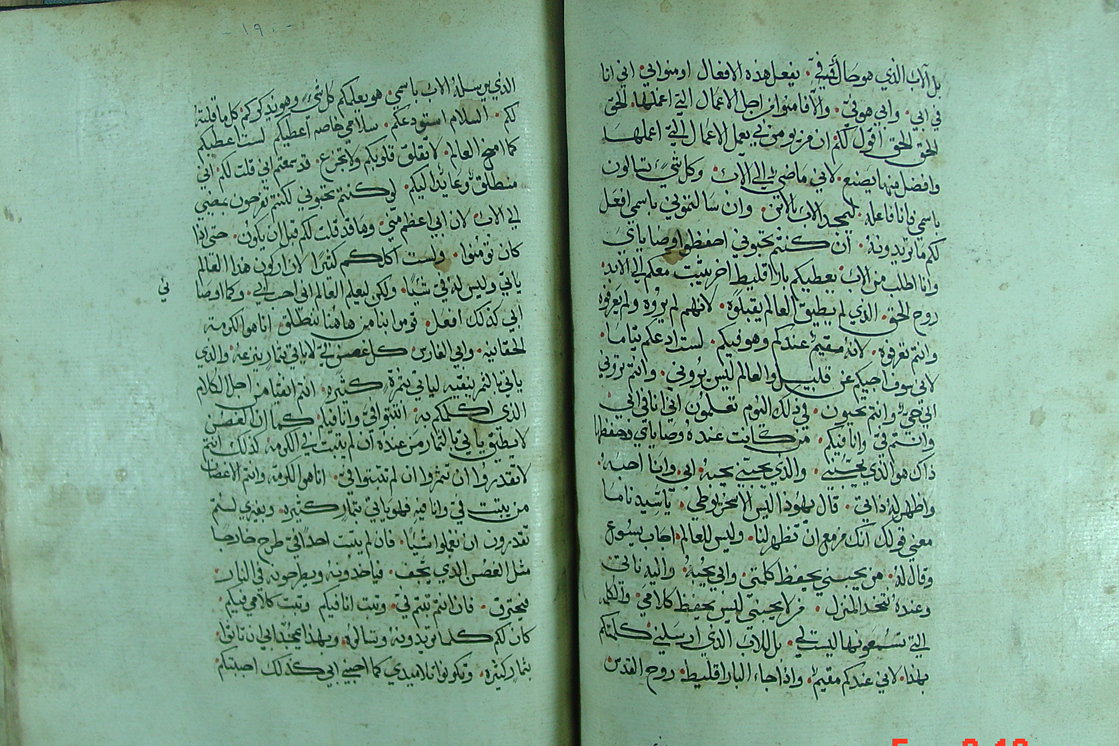 بل الاب الذي هو حال في يفعل هذه الافعال امنوا بي اني انا
في ابي وابي هو في والا فامنوا من اجل الاعمال التي اعملها الحق
الحق اقول لكم ان من يومن بي يعمل الاعمال التي اعملها
وافضل منها يصنع لاني ماضي الي الاب وكل شي تسالون
باسمي فانا فاعله ليمجد الاب بالابن وان سالتموني باسمي افعل
لكم ما تريدونه ان كنتم تحبوني احفظوا وصاياي
وانا اطلب من الاب يعطيكم بارااقليط اخر يبيت معكم الي الابد
روح الحق الذي لم يطيق العالم يقبلوه لانهم لم يروه ولم يعرفوه
وانتم تعرفوه لانه مقيم عندكم وهو فيكم لست ادعكم يتاما
لاني سوف اجيكم عن قليل والعالم ليس يروني وانتم تروني
اني حي وانتم تحيون في ذلك اليوم تعلمون اني انا في ابي
وانتم في وانا فيكم من كانت عنده وصاياي وحفظها
ذاك هو الذي يحبني والذي يحبني يحبه ابي وانا احبه
واظهر له ذاتي قال يهوذا ليس الاسخريوطي يا سيد ما
معني قولك انك مزمع ان تظهر لنا وليس للعالم اجاب يسوع
وقال له من يحبني يحفظ كلمتي وابي يحبه واليه ناتي
وعنده نتخذ المنزل من لا يحبني ليس يحفظ كلامي والكلمة
التي تسمعونها ليست لي بل للاب الذي ارسلني كلمتكم
بهذا لاني عندكم مقيم واذا جاء البارااقليط روح القدس
- ١٩٠ -
الذي يرسله الاب باسمي هو يعلمكم كل شي وهو يذكركم كل ما قلته
لكم السلام استودعكم سلامي خاصه اعطيكم لست اعطيكم
كما يمنح العالم لا تقلق قلوبكم ولا تجزع قد سمعتم اني قلت لكم اني
منطلق وعايد اليكم لو كنتم تحبوني لكنتم تفرحون بمضيي
الي الاب لان ابي اعظم مني وها قد قلت لكم قبل ان يكون حتي اذا
كان تومنوا ولست اكلمكم كثيرا لان اركون هذا العالم
ياتي وليس له في شيا ولكن ليعلم العالم اني احب ابي وكما اوصا
ني
ابي كذلك افعل قوموا بنا من هاهنا ننطلق انا هو الكرمة
الحقانيه وابي الفارس كل غصن في لا ياتي بثمار ينزعه والذي
ياتي بالثمر ينقيه لياتي بثمرة كثيره انتم انقيا من اجل الكلام
الذي اكلمكم به اثبتوا في وانا فيكم كما ان الغصن
لا يطيق ياتي بالثمار من عنده ان لم يثبت في الكرمه كذلك انتم
لا تقدروا ان تثمروا ان لم تثبتوا في انا هو الكرمة وانتم الاغصان
من يثبت في وانا فيه فهو ياتي بثمار كثيره وبغيري لستم
تقدرون ان تعملوا شيا فان لم يثبت احد في طرح خارجا
مثل الغصن الذي يجف فياخذونه ويطرحونه في النار
فيحترق فان انتم ثبتم في وثبت انا فيكم وثبت كلامي فيكم
كان لكم كلما تريدونه وتسالونه وبهذا يتمجد ابي ان تاتوا
بثمار كثيره وتكونوا تلاميذي كما احبني ابي كذلك احببتكم